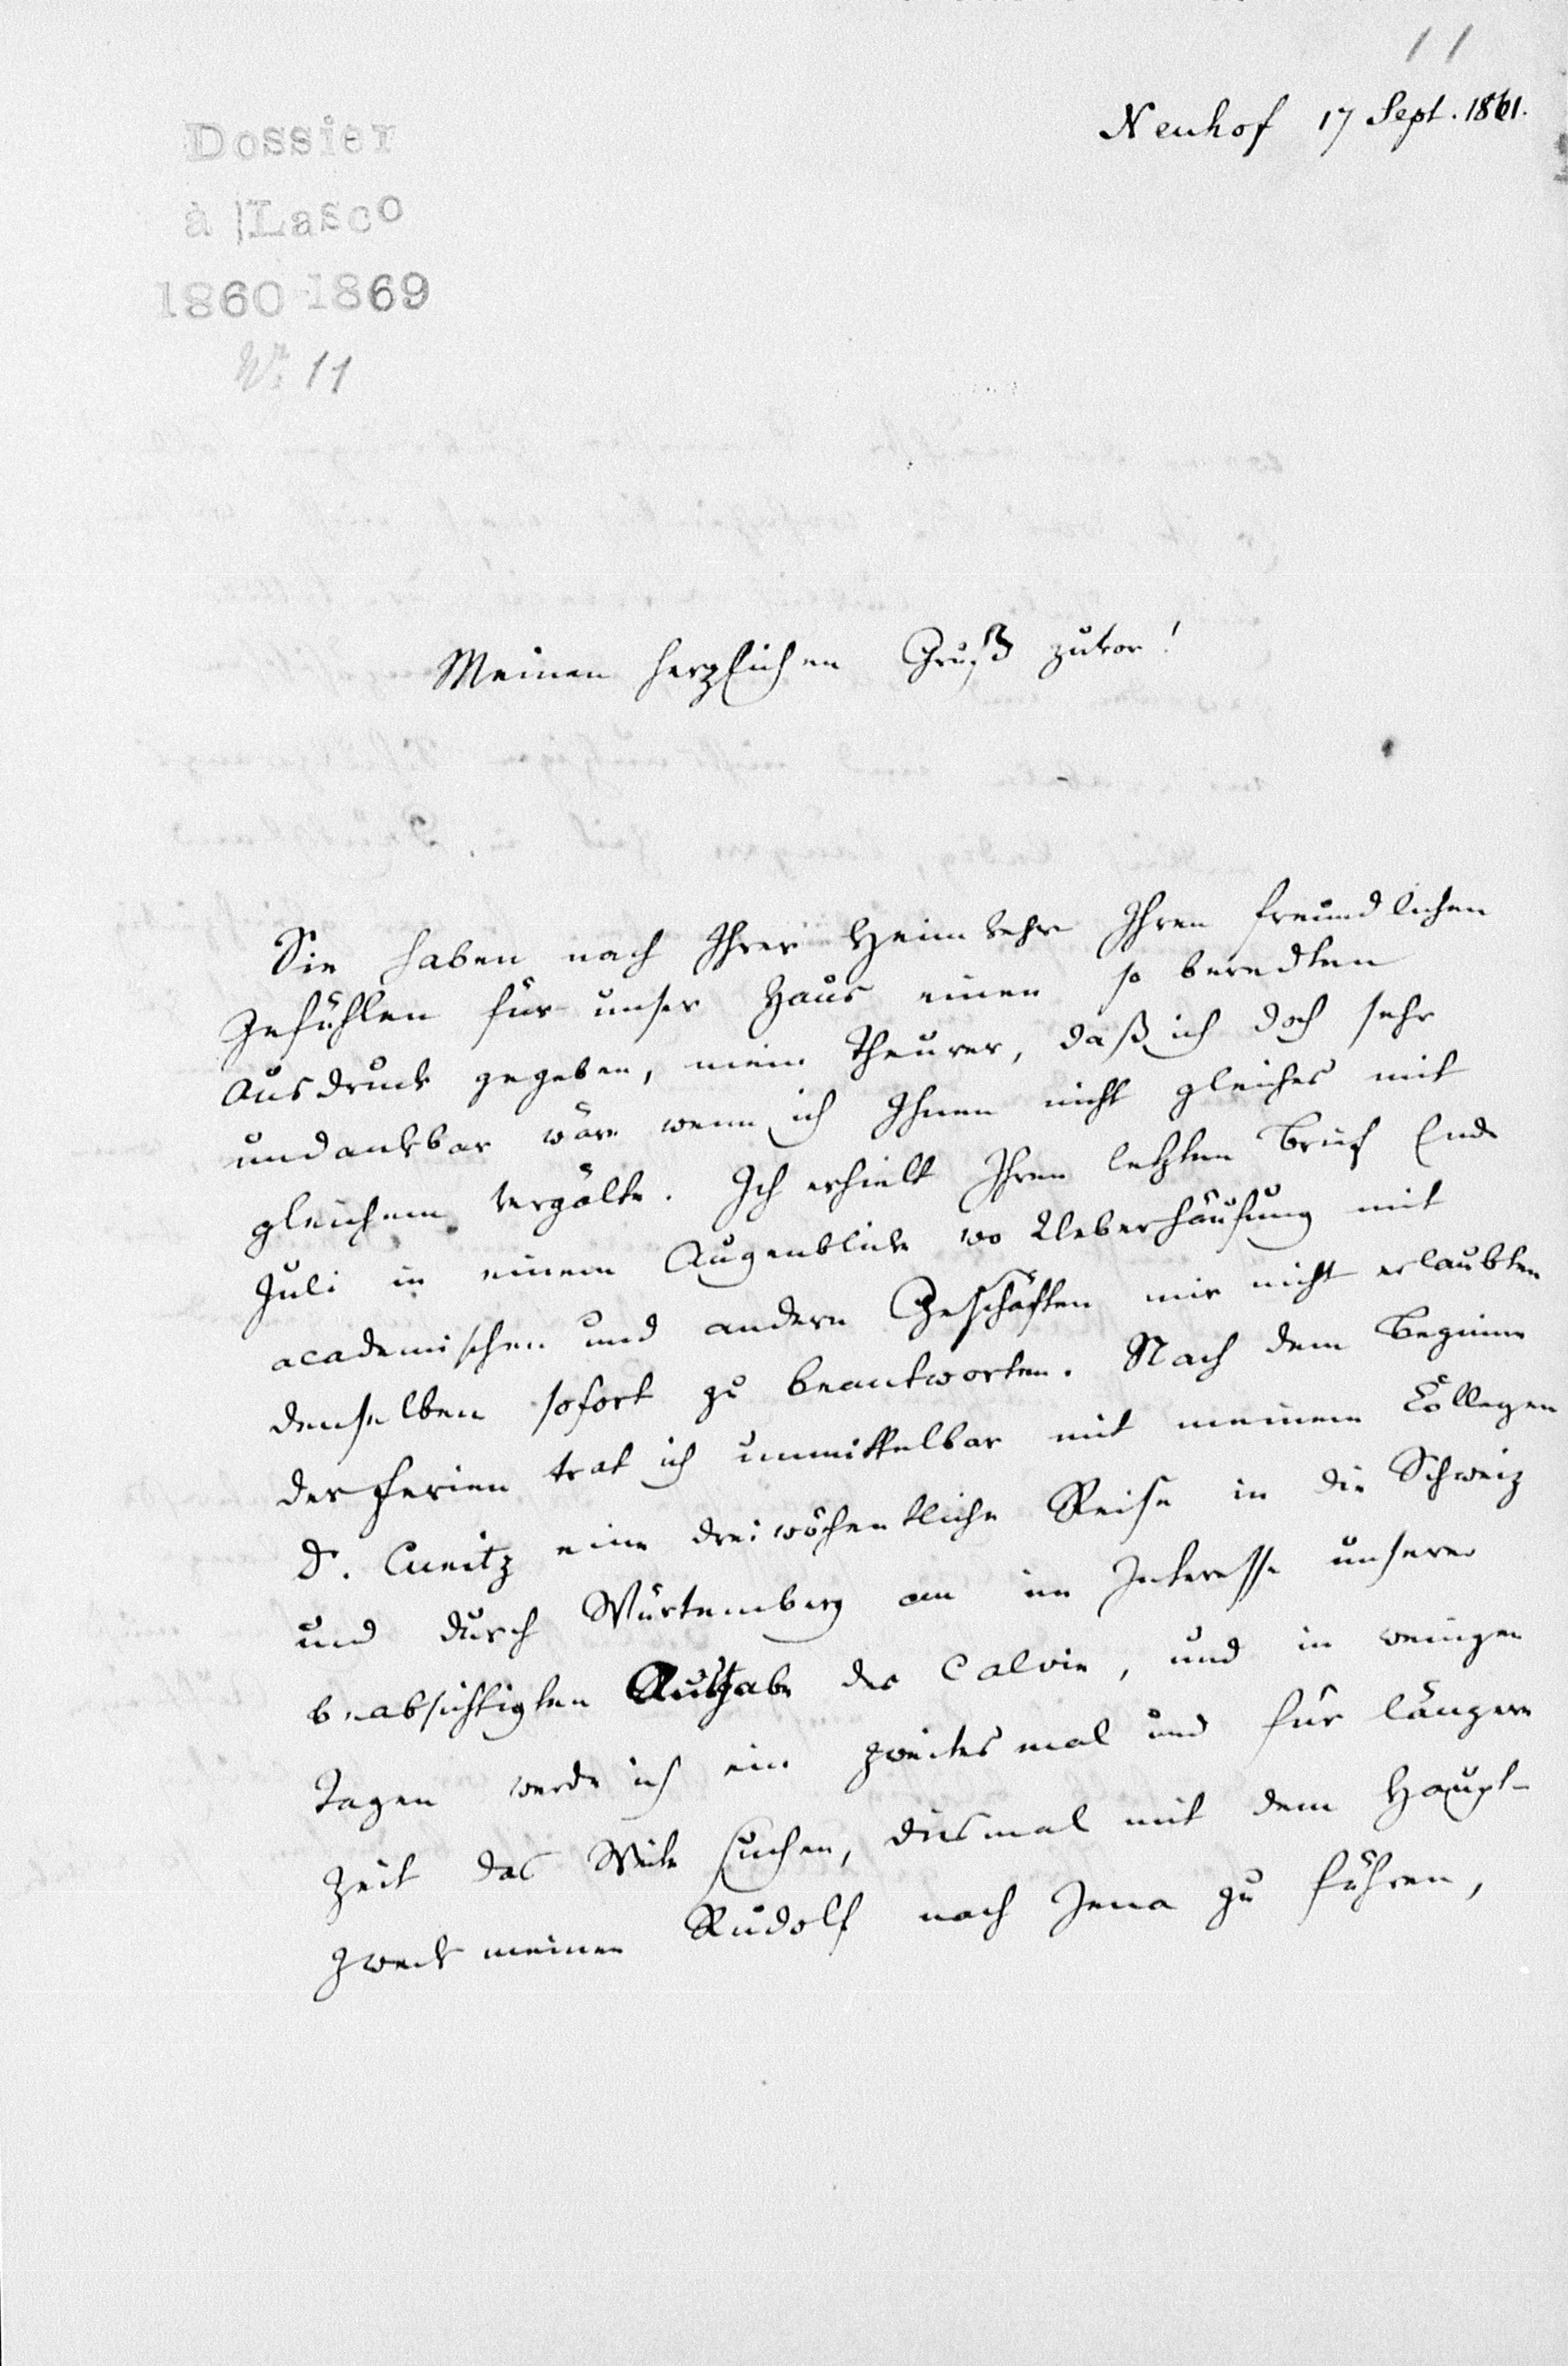 11
Neuhof 17 Sept. 1861.
Dossier
à Lasco
1860-1869
Nr. 11
Meinen herzlichen Gruß zuvor!
Sie haben nach Ihrer Heimkehr Ihren freundlichen
Gefühlen für unser Haus einen so beredten
Ausdruck gegeben, mein Theurer, daß ich doch sehr
undankbar wäre wenn ich Ihnen nicht gleiches mit
gleichem vergälte. Ich erhielt Ihren letzten Brief Ende
Juli in einem Augenblicke wo Ueberhäufung mit
academischen und andern Geschäften mir nicht erlaubten
denselben sofort zu beantworten. Nach dem Beginne
der Ferien trat ich unmittelbar mit meinem Collegen
D. Cunitz eine dreiwöchentliche Reise in die Schweiz
und durch Würtemberg an im Interesse unserer
beabsichtigten Ausgabe des Calvin, und in wenigen
Tagen werde ich ein zweites mal und für längere
Zeit das Weite suchen, diesmal mit dem Haupt-
zweck meinen Rudolf nach Jena zu führen,